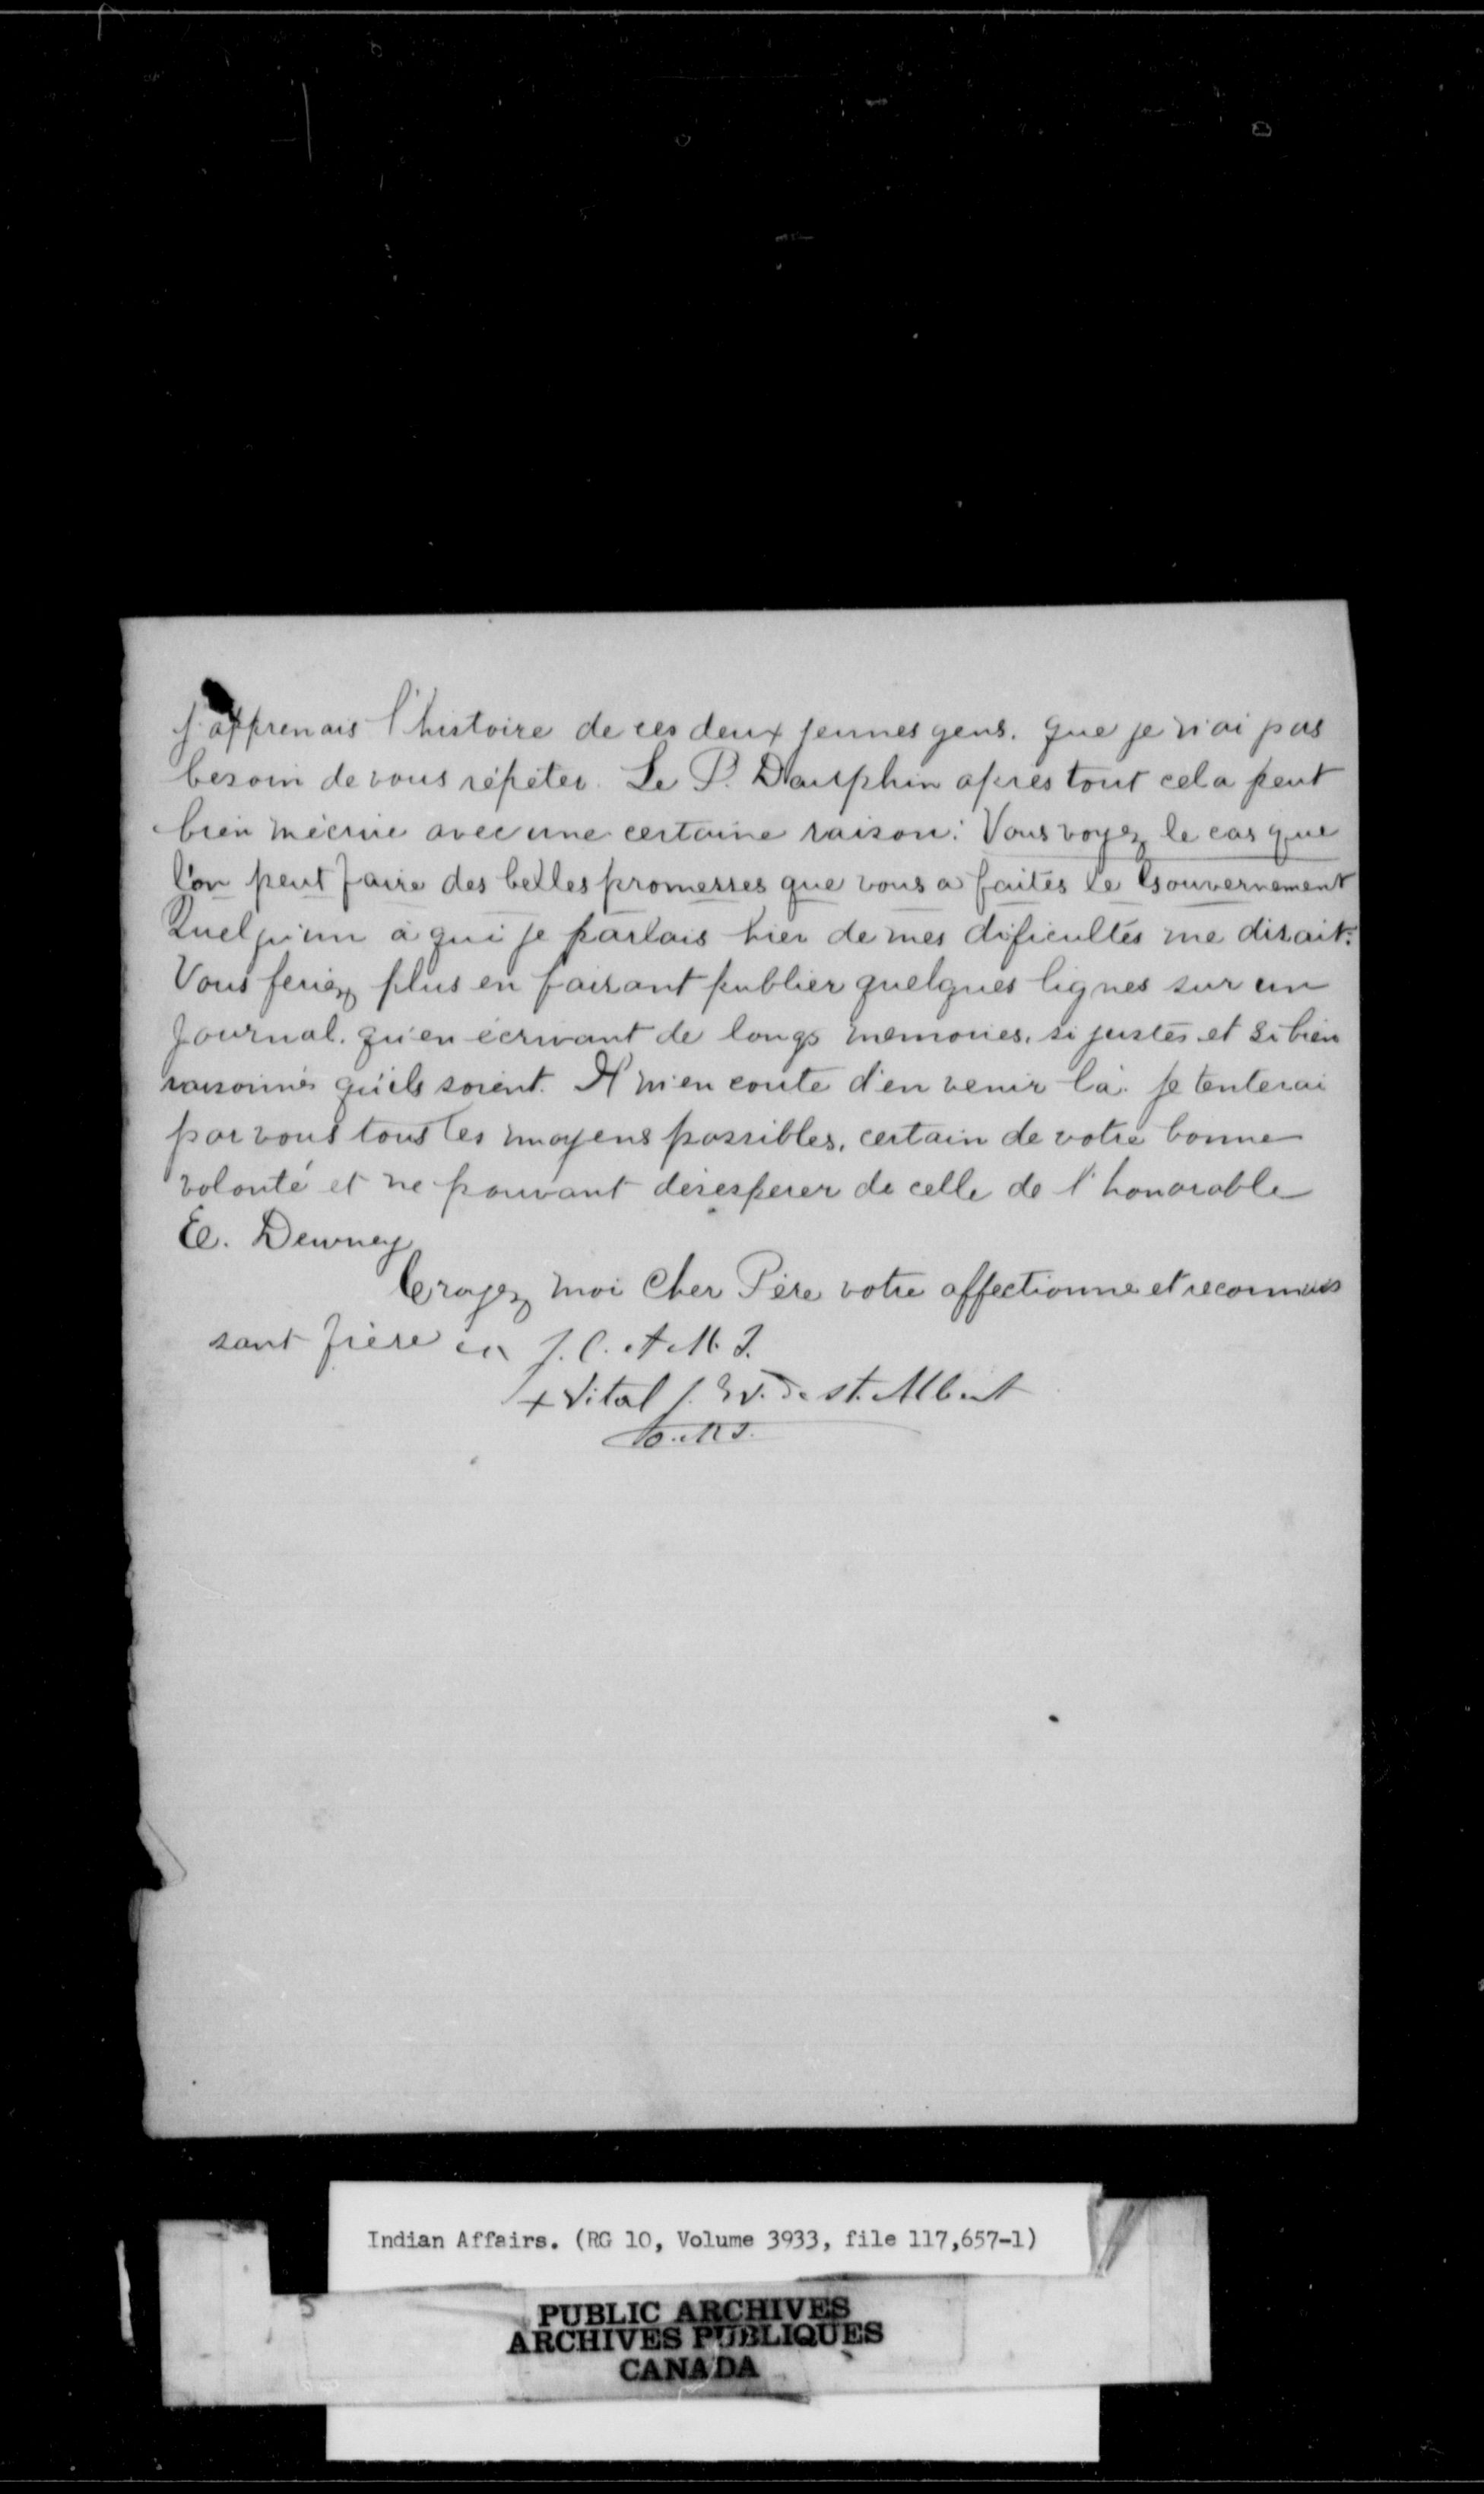 j'apprenais l'histoire de ces deux jeunes gens. que je n'ai pas
besoin de vous répéter. Le P. Dauphin après tout cela peut
bien m'écrire avec une certaine raison: Vous voyez le cas que
l'on peut faire des belles promesses que vous a faites le Gouvernement
Quelqu'un à qui je parlais hier de mes dificultés me disait:
Vous feriez plus en faisant publier quelques lignes sur un
Journal. qu'en écrivant de longs memoires, si justes et si bien
raisonnés qu'ils soient. Il m'en coute d'en venir là. je tenterai
par vous tous les moyens possibles, certain de votre bonne
volonté et ne pouvant desesperer de celle de l'honorable
E. Dewney
Croyez moi Cher Père votre affectionné et reconnais
sant frère en J. C. et M. I.
+ Vital J. Ev. de St. Albert
O.M.I.
Indian Affairs. (RG 10, Volume 3933, file 117,657-1)
5
PUBLIC ARCHIVES
ARCHIVES PUBLIQUES
CANADA